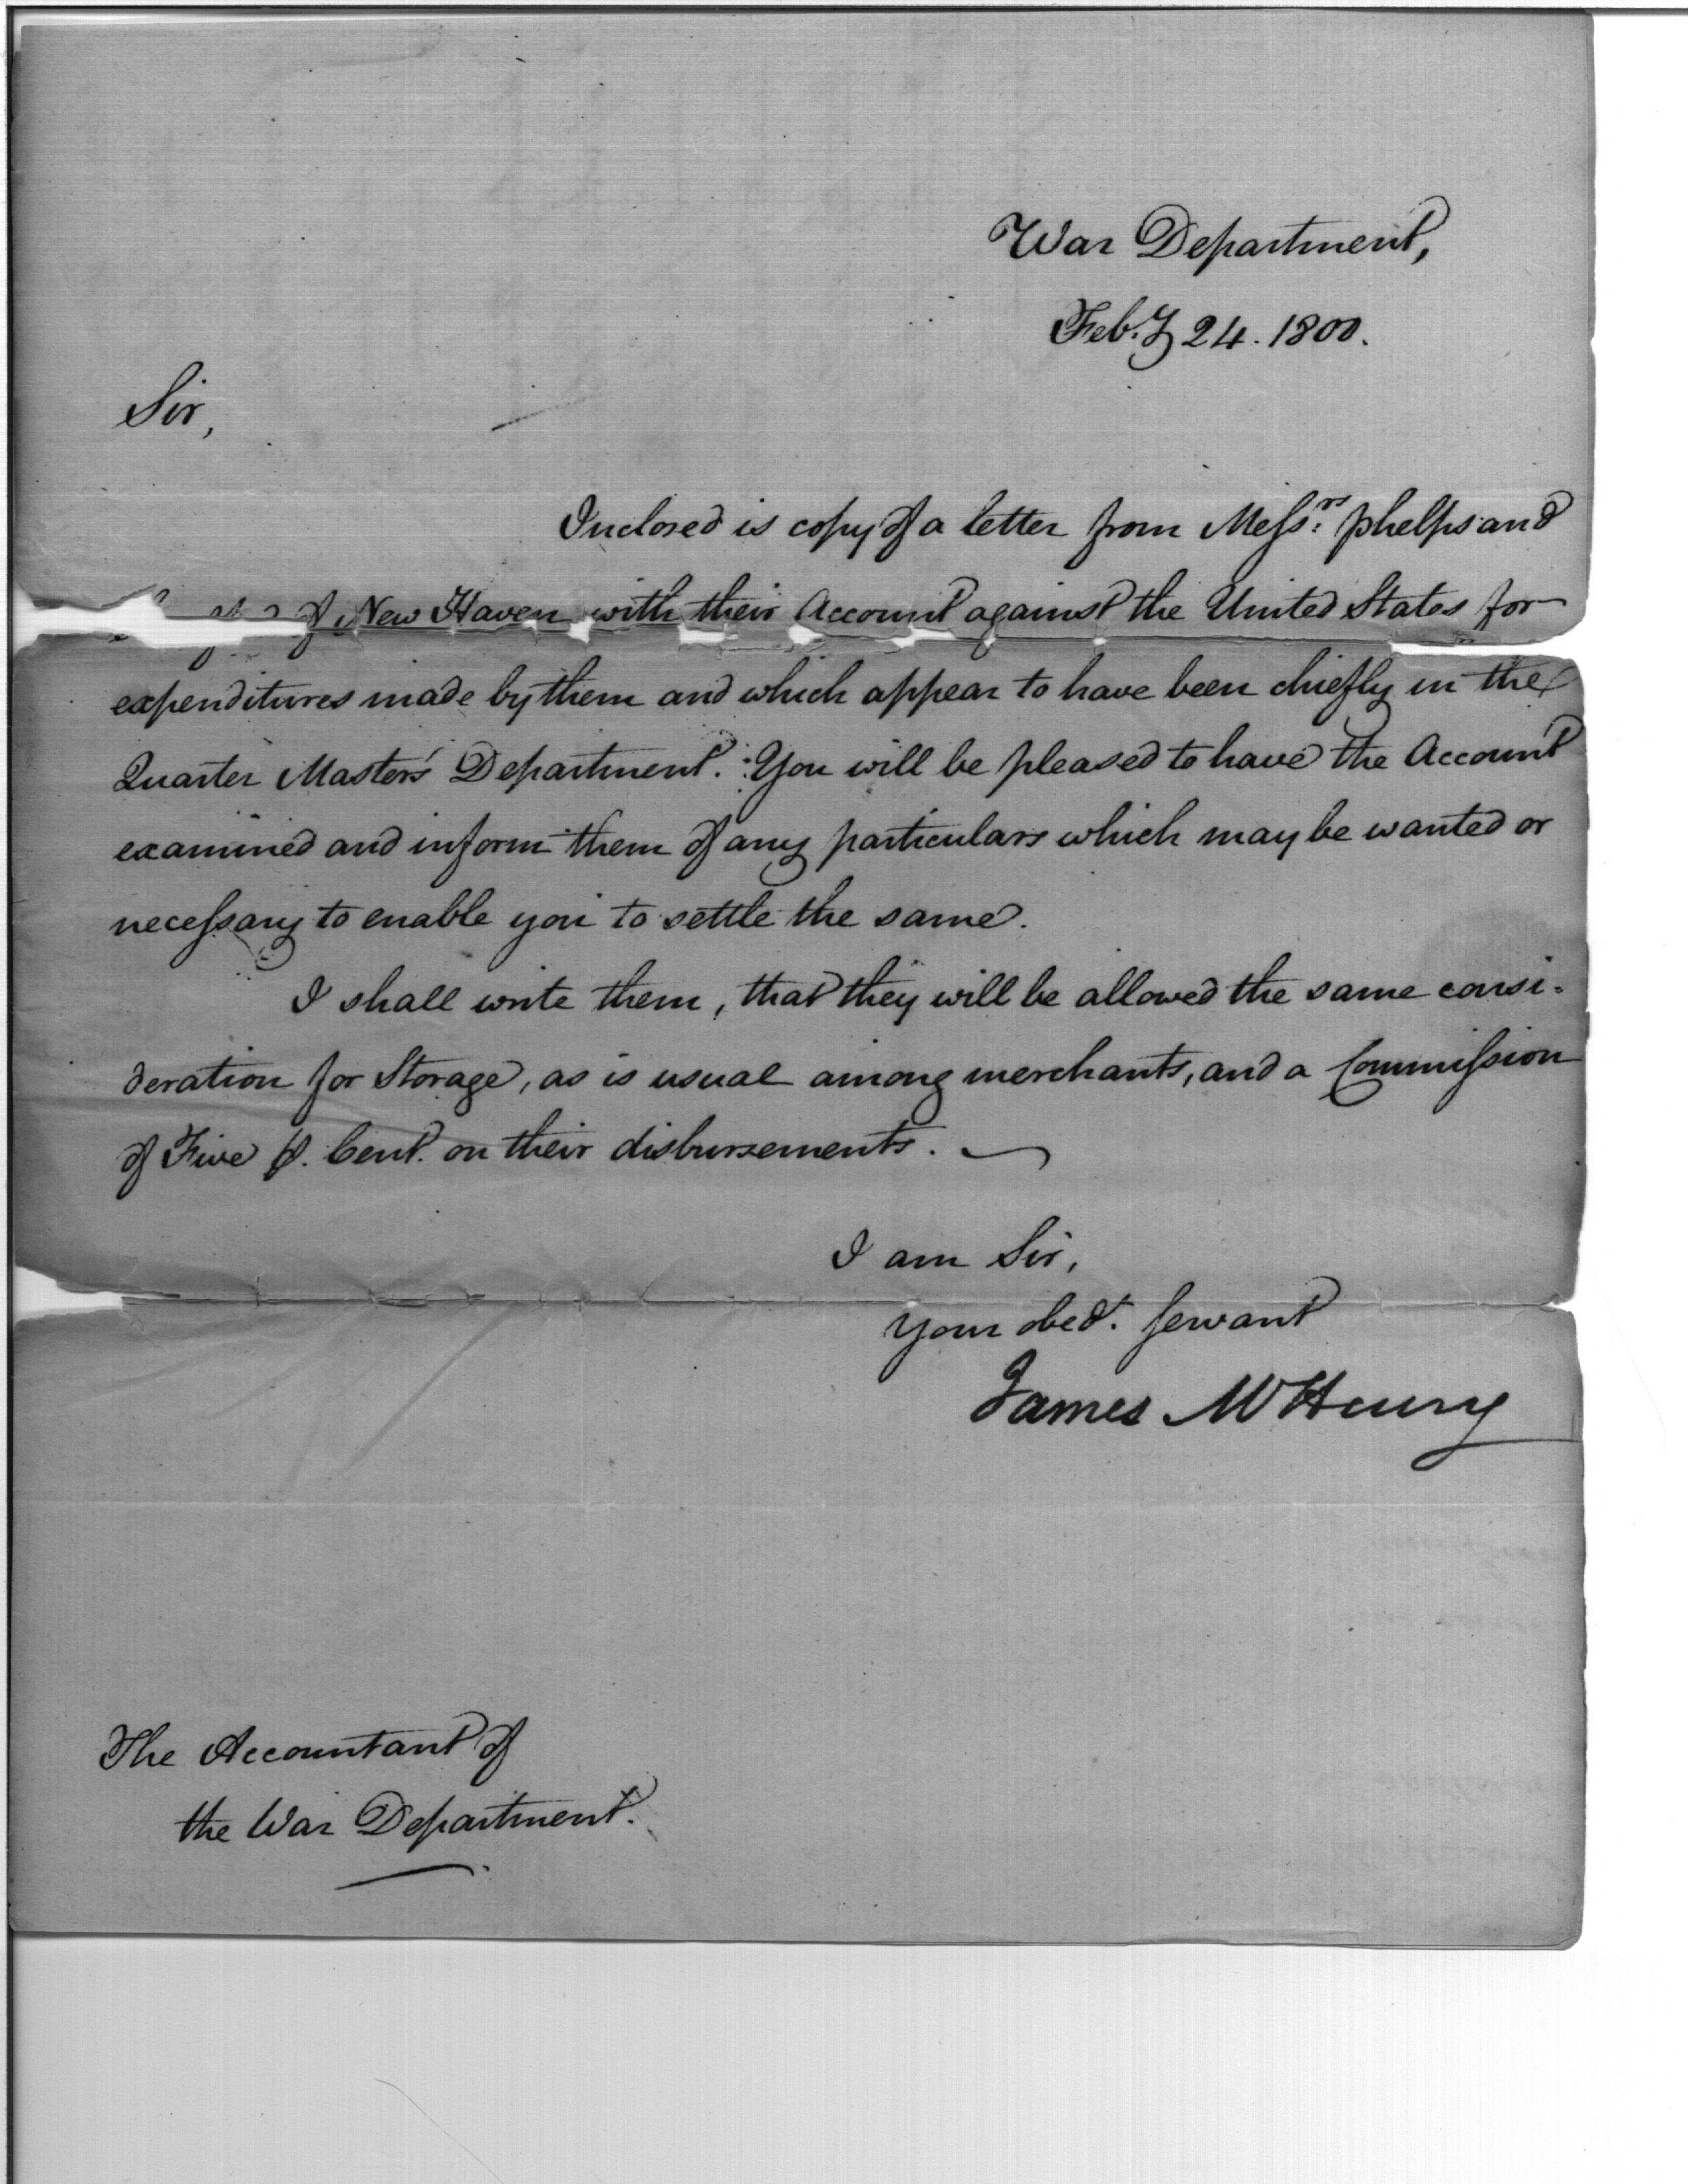 War Department,
Feb.y 24. 1800.
Sir,
Inclosed is copy of a letter from Mess.rs phelps and
of New Haven with their Account against the United States for
expenditures made by them and which appear to have been chiefly in the
Quarter Master's Department. You will be pleased to have the Account
examined and inform them of any particulars which may be wanted or
necessary to enable you to settle the same.
I shall write them, that they will be allowed the same consi-
deration for Storage, as is usual among merchants, and a Commission
of Five p. Cent. on their disbursements.
I am Sir,
your obed.t servant
James McHenry
The Accountant of
the War Department.